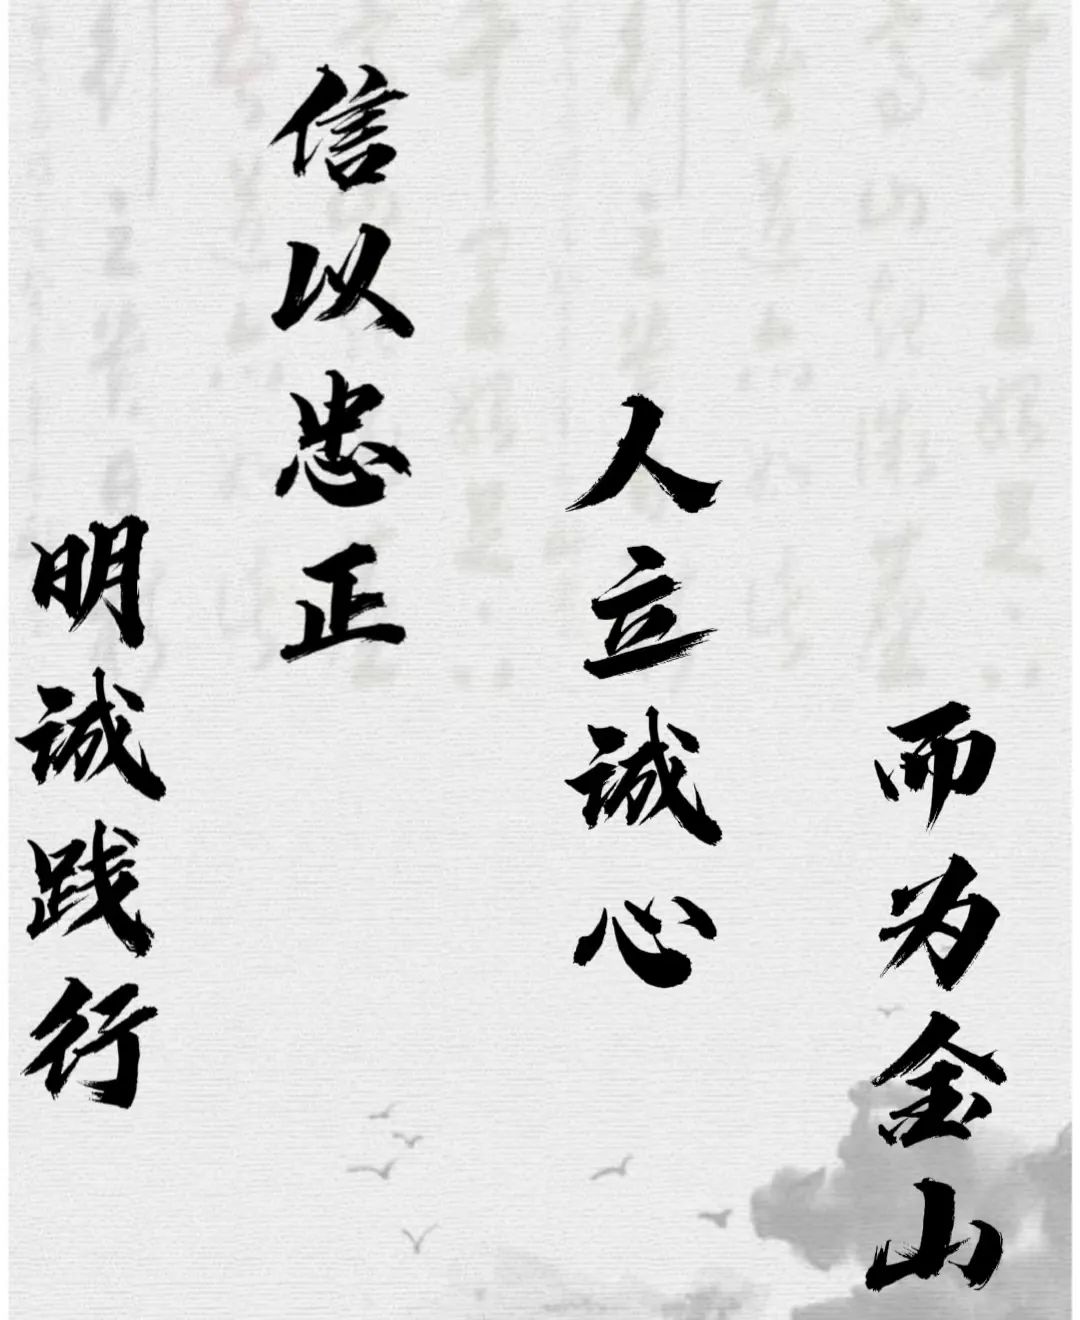 明诚践行
信以忠正
人立诚心
而为金山